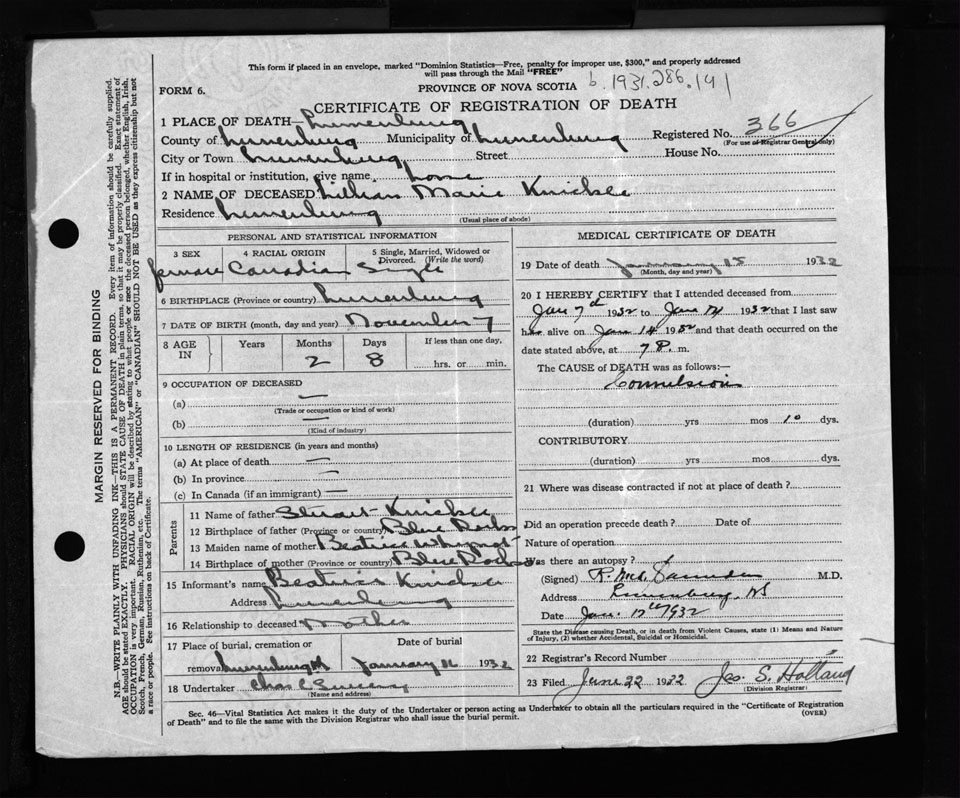 This form if placed in an envelope, marked "Dominion Statistics—Free, penalty for improper use, $300," and properly addressed
will pass through the Mail "FREE"
b. 1931.286.191
FORM 6.
PROVINCE OF NOVA SCOTIA
CERTIFICATE OF REGISTRATION OF DEATH
1 PLACE OF DEATH— Lunenburg
County of Lunenburg Municipality of Lunenburg Registered No. 366
(For use of Registrar General only)
City or Town Lunenburg, Street House No.
If in hospital or institution, give name. home
2 NAME OF DECEASED Lillian Marie Knickle
Residence Lunenburg
(Usual place of abode)
PERSONAL AND STATISTICAL INFORMATION
3 SEX 4 RACIAL ORIGIN 5 Single, Married, Widowed or
Divorced. (Write the word)
female Canadian Single
6 BIRTHPLACE (Province or country) Lunenburg
7 DATE OF BIRTH (month, day and year) November 7
8 AGE IN Years Months Days If less than one day,
2 8 hrs. or min.
9 OCCUPATION OF DECEASED
(a) —
(Trade or occupation or kind of work)
(b) —
(Kind of industry)
10 LENGTH OF RESIDENCE (in years and months)
(a) At place of death —
(b) In province —
(c) In Canada (if an immigrant) —
Parents
11 Name of father Stuart Knickle
12 Birthplace of father (Province or country) Blue Rocks
13 Maiden name of mother Beatrice Whynot
14 Birthplace of mother (Province or country) Blue Rocks
15 Informant's name Beatrice Knickle
Address Lunenburg
16 Relationship to deceased Mother
17 Place of burial, cremation or Date of burial
removal Lunenburg January 1932
18 Undertaker Chas C
(Name and address)
MEDICAL CERTIFICATE OF DEATH
19 Date of death January 15 1932
(Month, day and year)
20 I HEREBY CERTIFY that I attended deceased from
Jan 7th 1932 to Jan 14 1932 that I last saw
her alive on Jan 14 1932 and that death occurred on the
date stated above, at 7 P. m.
The CAUSE of DEATH was as follows:—
Convulsions
(duration) yrs mos 10 dys.
CONTRIBUTORY
(duration) yrs mos dys.
21 Where was disease contracted if not at place of death?
Did an operation precede death? Date of
Nature of operation
Was there an autopsy?
(Signed) R. McK. Saunders M.D.
Address Lunenburg, NS
Date Jan. 1932
State the Disease causing Death, or in death from Violent Causes, state (1) Means and Nature
of Injury, (2) whether Accidental, Suicidal or Homicidal.
22 Registrar's Record Number
23 Filed June 22 1932 Jas. S. Holland
(Division Registrar)
Sec. 46—Vital Statistics Act makes it the duty of the Undertaker or person acting as Undertaker to obtain all the particulars required in the "Certificate of Registration
of Death" and to file the same with the Division Registrar who shall issue the burial permit. (OVER)
MARGIN RESERVED FOR BINDING
N.B. WRITE PLAINLY WITH UNFADING INK—THIS IS A PERMANENT RECORD. Every item of information should be carefully supplied.
AGE should be stated EXACTLY. PHYSICIANS should STATE CAUSE OF DEATH in plain terms, so that it may be properly classified. Exact statement of
OCCUPATION is very important. RACIAL ORIGIN will be described by stating to what people or race the deceased person belonged, whether English, Irish,
Scotch, French, German, Russian, Ruthenian, etc. The terms "AMERICAN" or "CANADIAN" SHOULD NOT BE USED as they express citizenship but not
a race or people. See instructions on back of Certificate.